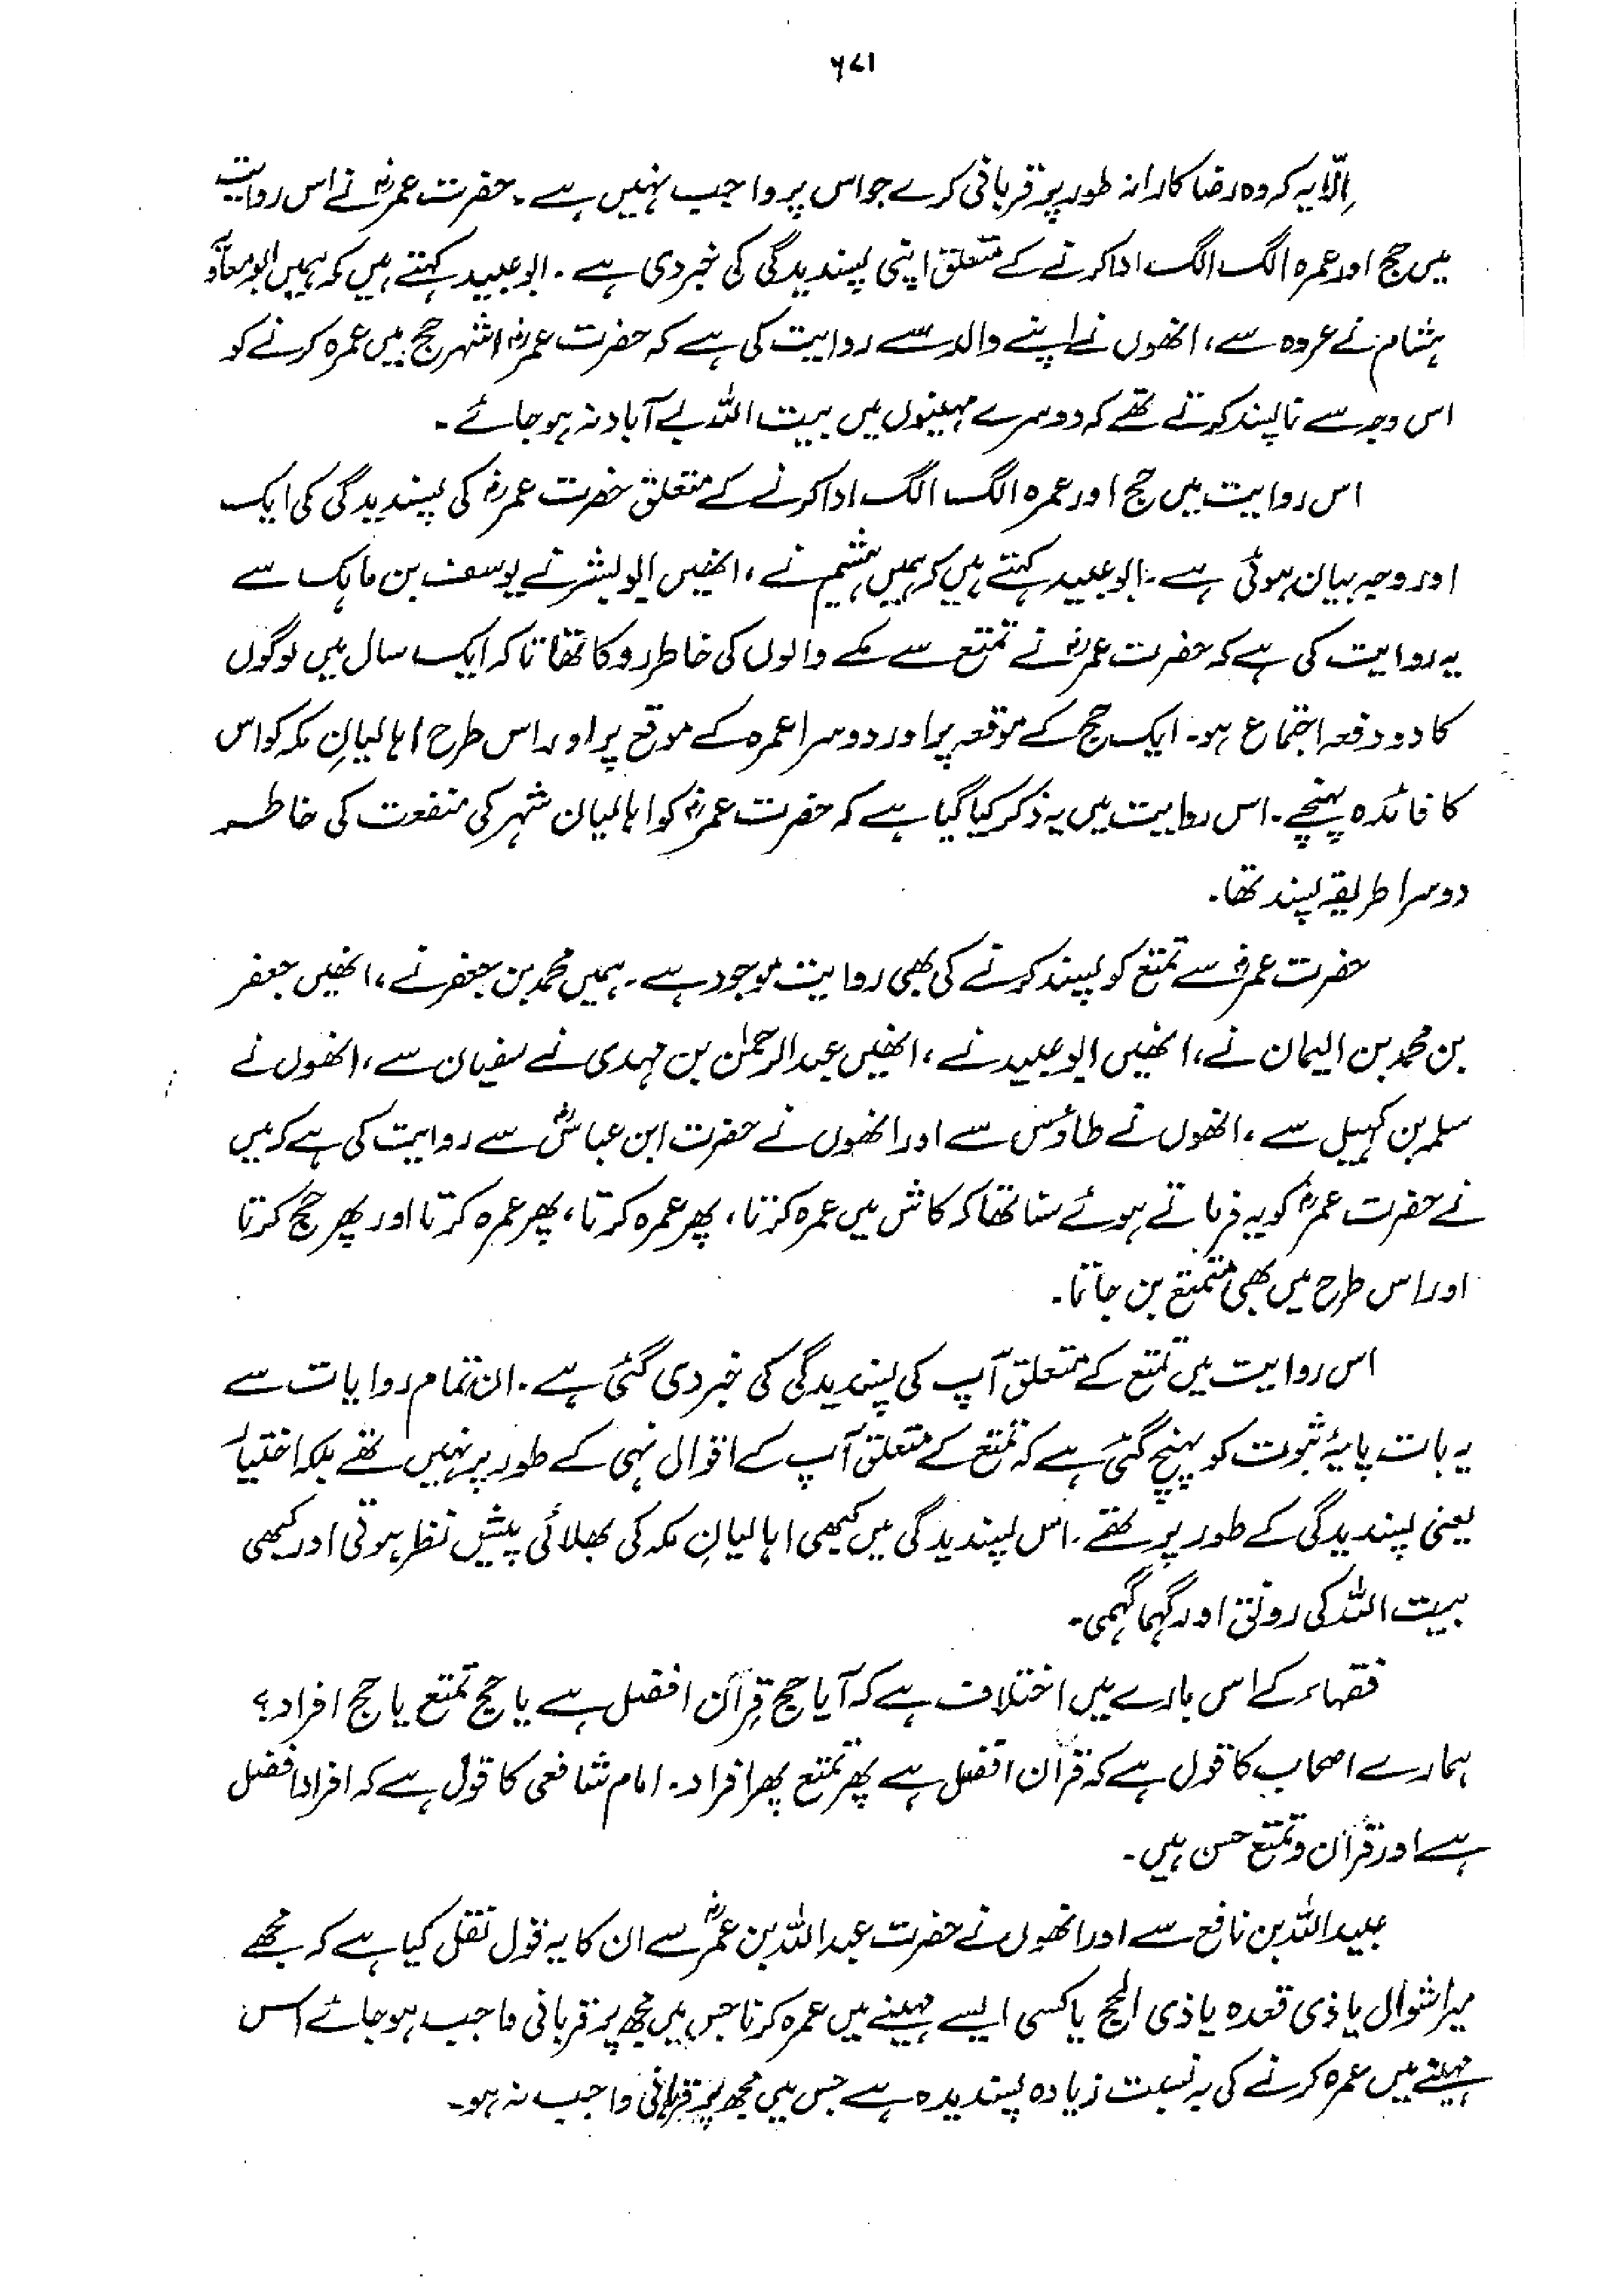 ۶۷۱
اِلّا یہ کہ وہ رضا کارانہ طور پر قربانی کرے جو اس پر واجب نہیں ہے۔ حضرت عمرؓ نے اس روایت
میں حج اور عمرہ الگ الگ ادا کرنے کے متعلق اپنی پسندیدگی کی خبر دی ہے۔ ابو عبید کہتے ہیں کہ ہمیں ابو معاویہ
ہشام نے عروہ سے، انھوں نے اپنے والد سے روایت کی ہے کہ حضرت عمرؓ اشہر حج میں عمرہ کرنے کو
اس وجہ سے ناپسند کرتے تھے کہ دوسرے مہینوں میں بیت اللہ بے آباد نہ ہو جائے۔
اس روایت میں حج اور عمرہ الگ الگ ادا کرنے کے متعلق حضرت عمرؓ کی پسندیدگی کی ایک
اور وجہ بیان ہوئی ہے۔ ابو عبید کہتے ہیں کہ ہمیں ہشیم نے، انھیں ابو بشر نے یوسف بن ماہک سے
یہ روایت کی ہے کہ حضرت عمرؓ نے تمتع سے مکے والوں کی خاطر روکا تھا تاکہ ایک سال میں لوگوں
کا دو دفعہ اجتماع ہو۔ ایک حج کے موقعہ پر اور دوسرا عمرہ کے موقع پر اور اس طرح اہالیانِ مکہ کو اس
کا فائدہ پہنچے۔ اس روایت میں یہ ذکر کیا گیا ہے کہ حضرت عمرؓ کو اہالیان شہر کی منفعت کی خاطر
دوسرا طریقہ پسند تھا۔
حضرت عمرؓ سے تمتع کو پسند کرنے کی بھی روایت موجود ہے۔ ہمیں محمد بن جعفر نے، انھیں جعفر
بن محمد بن الیمان نے، انھیں ابو عبید نے، انھیں عبدالرحمٰن بن مہدی نے سفیان سے، انھوں نے
سلمہ بن کہیل سے، انھوں نے طاؤس سے اور انھوں نے حضرت ابن عباسؓ سے روایت کی ہے کہ میں
نے حضرت عمرؓ کو یہ فرماتے ہوئے سنا تھا کہ کاش میں عمرہ کرتا، پھر عمرہ کرتا، پھر عمرہ کرتا اور پھر حج کرتا
اور اس طرح میں بھی متمتع بن جاتا۔
اس روایت میں تمتع کے متعلق آپ کی پسندیدگی کی خبر دی گئی ہے۔ ان تمام روایات سے
یہ بات پایۂ ثبوت کو پہنچ گئی ہے کہ تمتع کے متعلق آپ کے اقوال نہی کے طور پر نہیں تھے بلکہ اختیار
یعنی پسندیدگی کے طور پر تھے۔ اس پسندیدگی میں کبھی اہالیانِ مکہ کی بھلائی پیش نظر ہوتی اور کبھی
بیت اللہ کی رونق اور گہما گہمی۔
فقہاء کے اس بارے میں اختلاف ہے کہ آیا حج قِران افضل ہے یا حج تمتع یا حج افراد؟
ہمارے اصحاب کا قول ہے کہ قران افضل ہے پھر تمتع پھر افراد۔ امام شافعی کا قول ہے کہ افراد افضل
ہے اور قران و تمتع حسن ہیں۔
عبیداللہ بن نافع سے اور انھوں نے حضرت عبداللہ بن عمرؓ سے ان کا یہ قول نقل کیا ہے کہ مجھے
میرا شوال یا ذی قعدہ یا ذی الحج یا کسی ایسے مہینے میں عمرہ کرنا جس میں مجھ پر قربانی واجب ہو جائے اس
مہینے میں عمرہ کرنے کی بہ نسبت زیادہ پسندیدہ ہے جس میں مجھ پر قربانی واجب نہ ہو۔